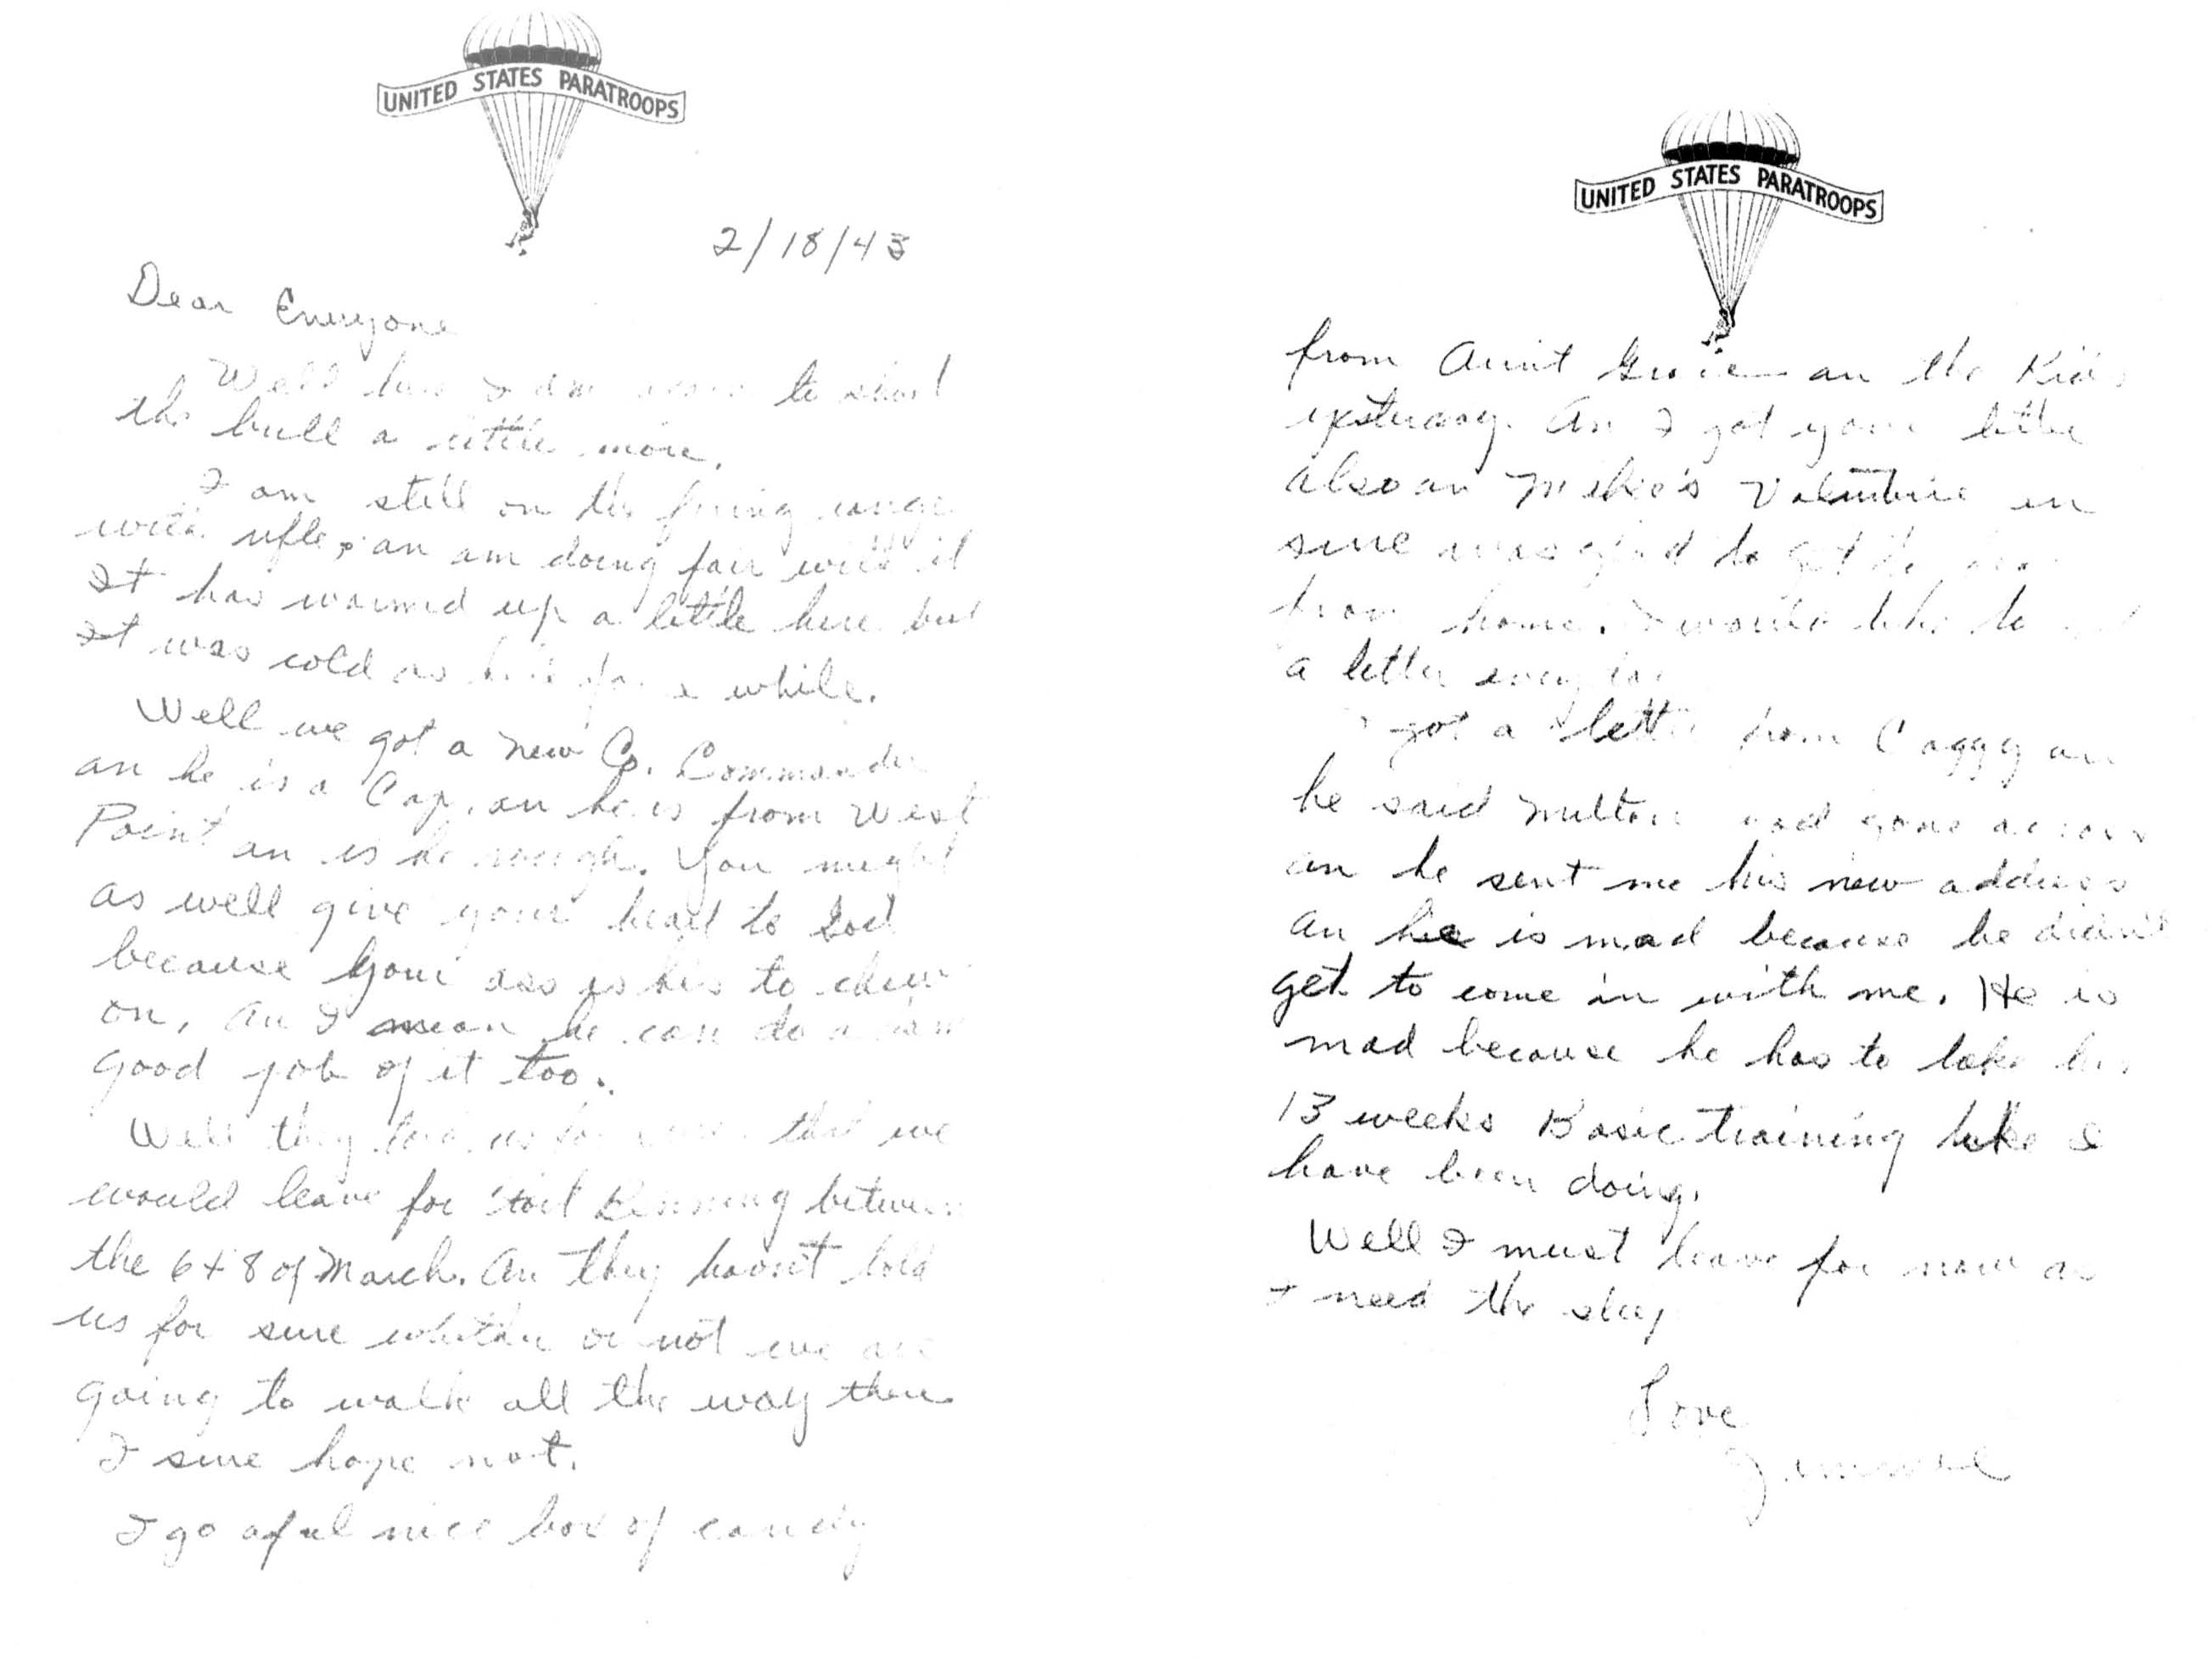 UNITED STATES PARATROOPS
2/18/43
Dear Everyone
Well here I am again to shoot
the bull a little more.
I am still on the firing range
with rifle, an am doing fair with it
It has warmed up a little here but
It was cold as hell for a while.
Well we got a new Co. Commander
an he is a Cap. an he is from West
Point an is he rough. You might
as well give your heart to God
because your ass is his to chew
on, an I mean he can do a dam
good job of it too.
Well they told us for sure that we
would leave for Fort Benning between
the 6 + 8 of March. An they havn't told
us for sure whether or not we are
going to walk all the way there
I sure hope not.
I go aful nice box of candy
UNITED STATES PARATROOPS
from Aunt an the Kids
yesterday. An I got your letter
also an Mike's Valentine an
sure was glad to get to hear
from home. I would like to get
a letter every day
I got a letter from Caggy an
he said Milton had gone across
an he sent me his new address
an he is mad because he didn't
get to come in with me. He is
mad because he has to take his
13 weeks Basic training like I
have been doing.
Well I must leave for now as
I need the sleep
Love